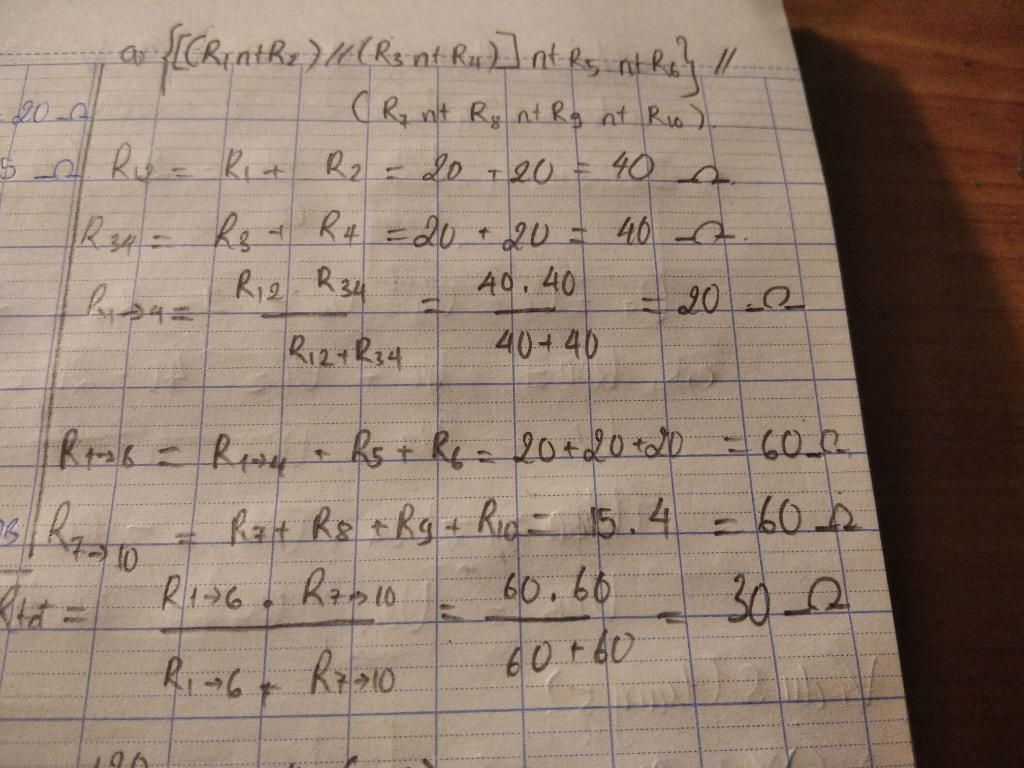 {[(R₁ nt R₂) // (R₃ nt R₄)] nt R₅ nt R₆} //
(R₇ nt R₈ nt R₉ nt R₁₀).
20 Ω
5 Ω
R₁₂ = R₁ + R₂ = 20 + 20 = 40 Ω.
R₃₄ = R₃ + R₄ = 20 + 20 = 40 Ω.
R₁→₄ = R₁₂ . R₃₄ / R₁₂ + R₃₄ = 40 . 40 / 40 + 40 = 20 Ω
R₁→₆ = R₁→₄ + R₅ + R₆ = 20 + 20 + 20 = 60 Ω.
R₇→₁₀ = R₇ + R₈ + R₉ + R₁₀ = 15 . 4 = 60 Ω
Rtđ = R₁→₆ . R₇→₁₀ / R₁→₆ + R₇→₁₀ = 60 . 60 / 60 + 60 = 30 Ω